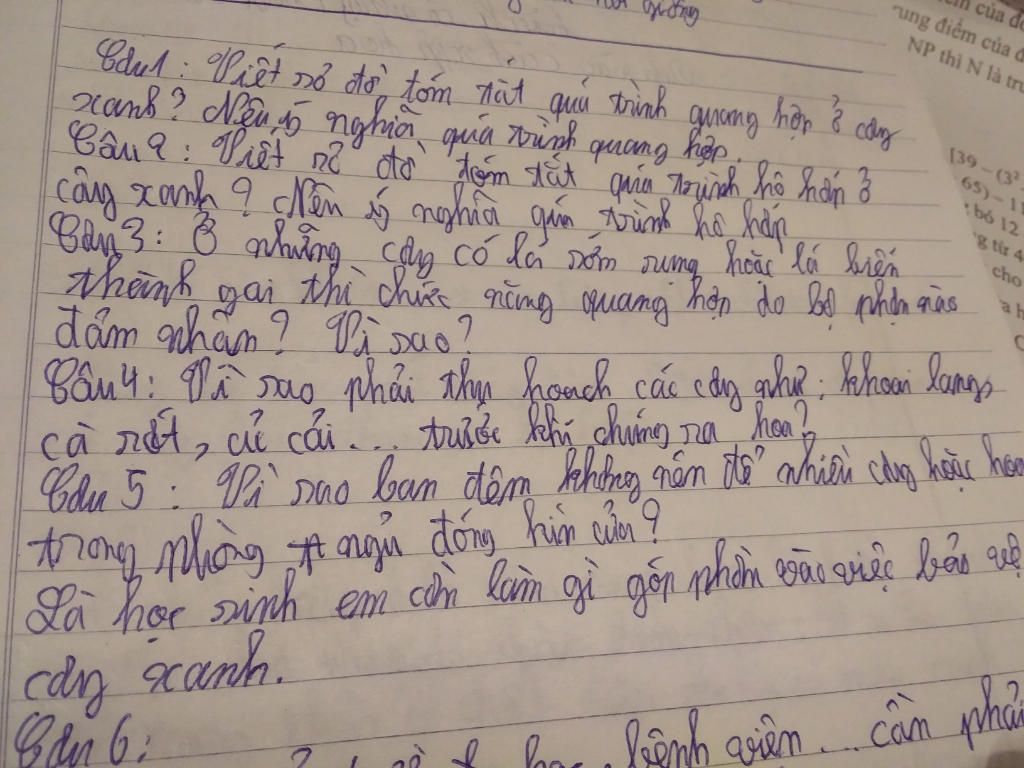 Câu 1: Viết sơ đồ tóm tắt quá trình quang hợp ở cây
xanh? Nêu ý nghĩa quá trình quang hợp.
Câu 2: Viết sơ đồ tóm tắt quá trình hô hấp ở
cây xanh? Nêu ý nghĩa quá trình hô hấp
Câu 3: Ở những cây có lá sớm rụng hoặc lá biến
thành gai thì chức năng quang hợp do bộ phận nào
đảm nhận? Vì sao?
Câu 4: Vì sao phải thu hoạch các cây như: khoai lang,
cà rốt, củ cải... trước khi chúng ra hoa?
Câu 5: Vì sao ban đêm không nên để nhiều cây hoặc hoa
trong phòng ngủ đóng kín cửa?
Là học sinh em cần làm gì góp phần vào việc bảo vệ
cây xanh.
Câu 6:
bệnh viện... cần phải
của đ
rung điểm của đ
NP thì N là tru
[39 – (3²
65) – 11
bó 12
g từ 4
cho